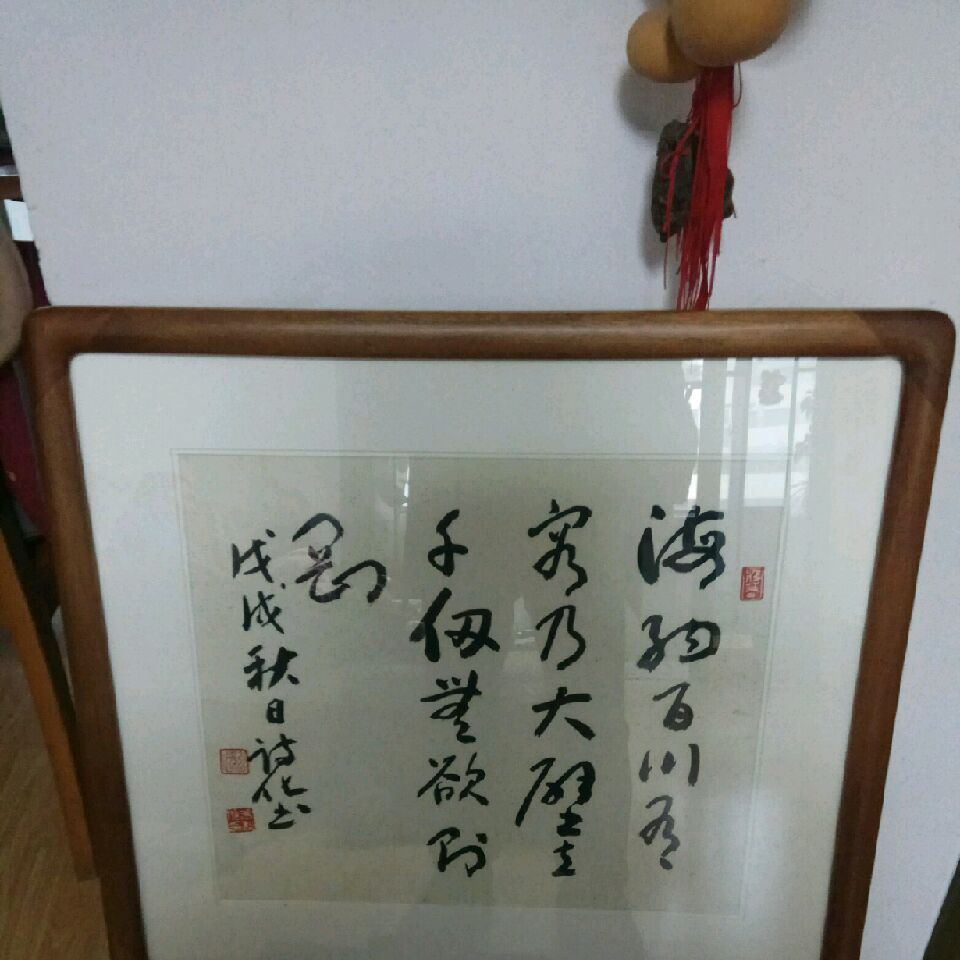 海纳百川有
容乃大壁立
千仞無欲则
刚
戊戌秋日诗化书